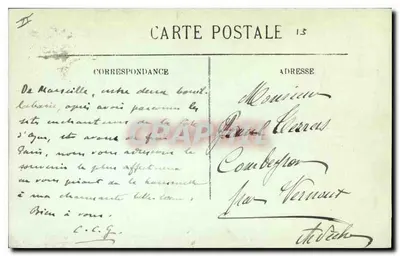 II
CARTE POSTALE 13
CORRESPONDANCE
ADRESSE
De Marseille, entre deux
après avoir parcouru les
sites enchanteurs de la Côte
d'Azur, et avant de
Paris, nous vous adressons le
souvenir le plus affectueux
en vous priant de
à ma charmante
Bien à vous.
C.L.G.
Monsieur
Paul
Combeyran
par Vernoux
Ardèche